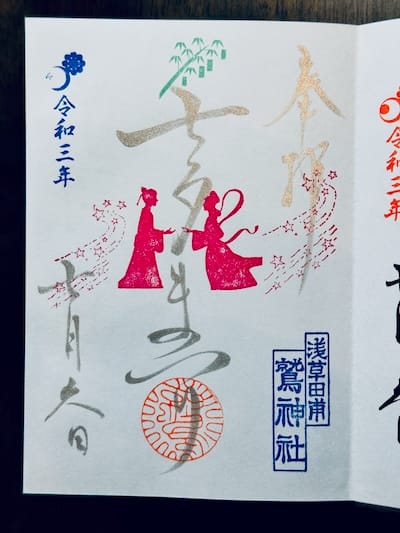 奉拝
七夕まつり
令和三年
七月六日
浅草田甫
鷲神社
令和三年